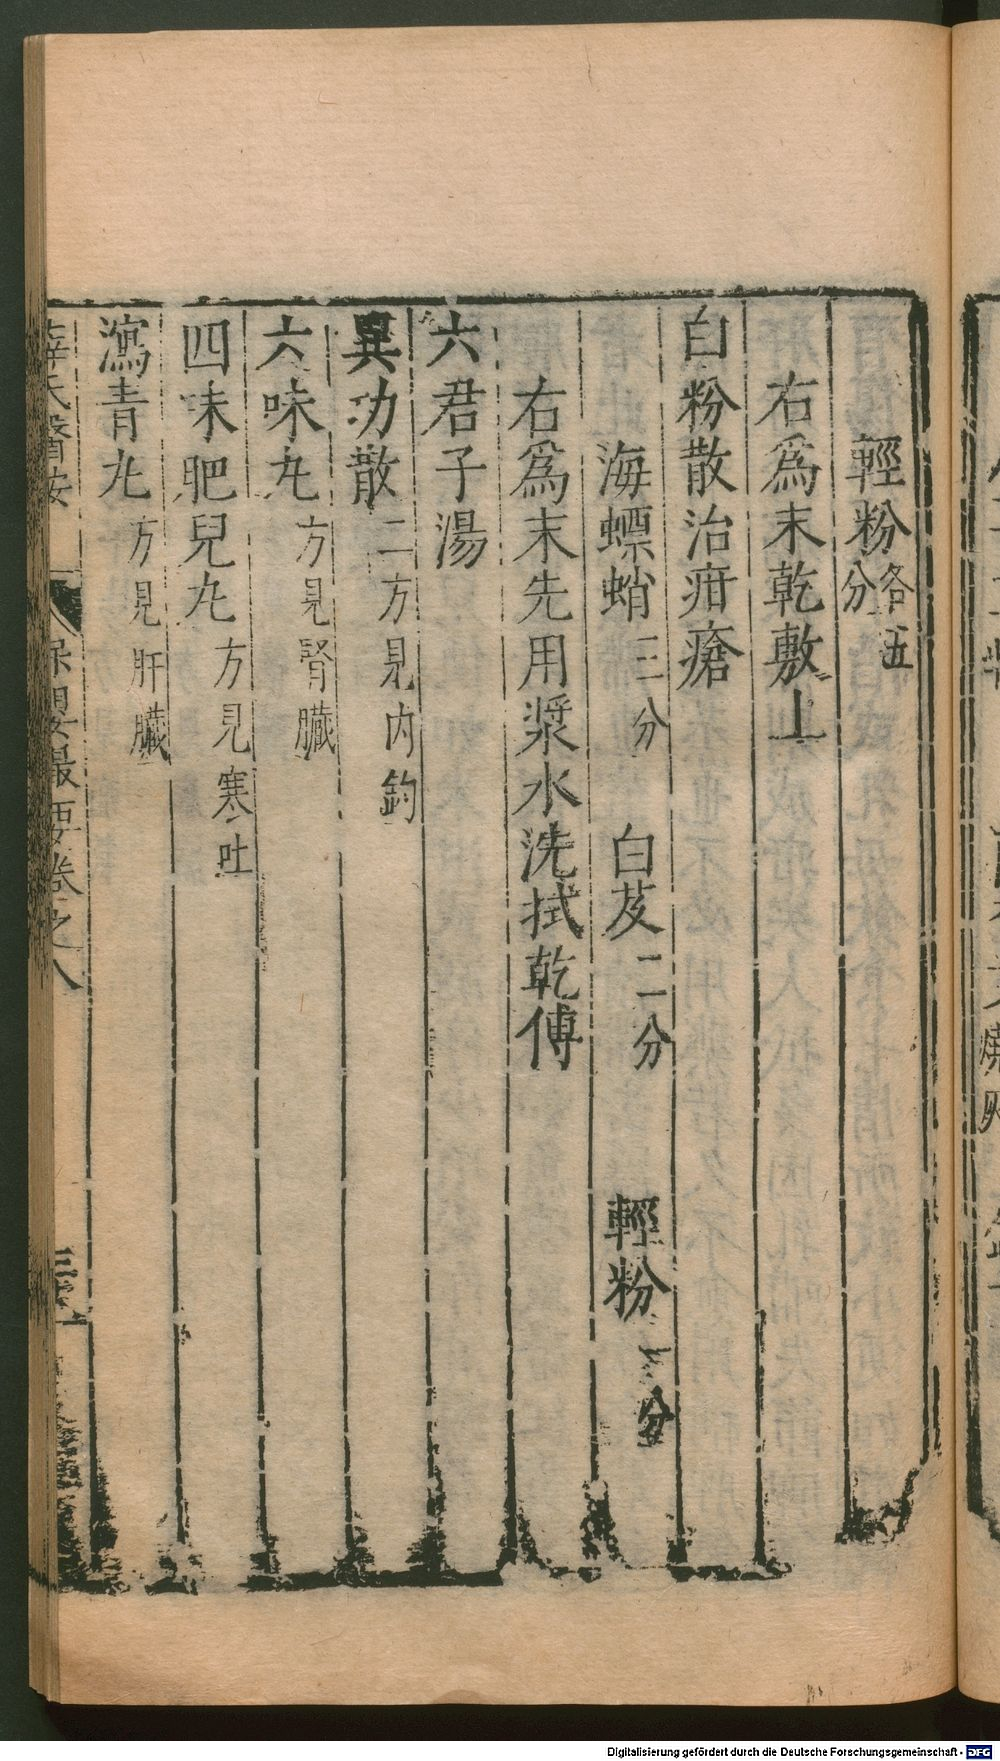 輕粉各五分
右爲末乾敷上
白粉散治疳瘡
海螵蛸三分 白芨二分 輕粉一分
右爲末先用漿水洗拭乾傅
六君子湯
異功散二方見內鈞
六味丸方見腎臟
四味肥兒丸方見寒吐
瀉青丸方見肝臟
薛氏醫按 保嬰最要卷之八
Digitalisierung gefördert durch die Deutsche Forschungsgemeinschaft - DFG